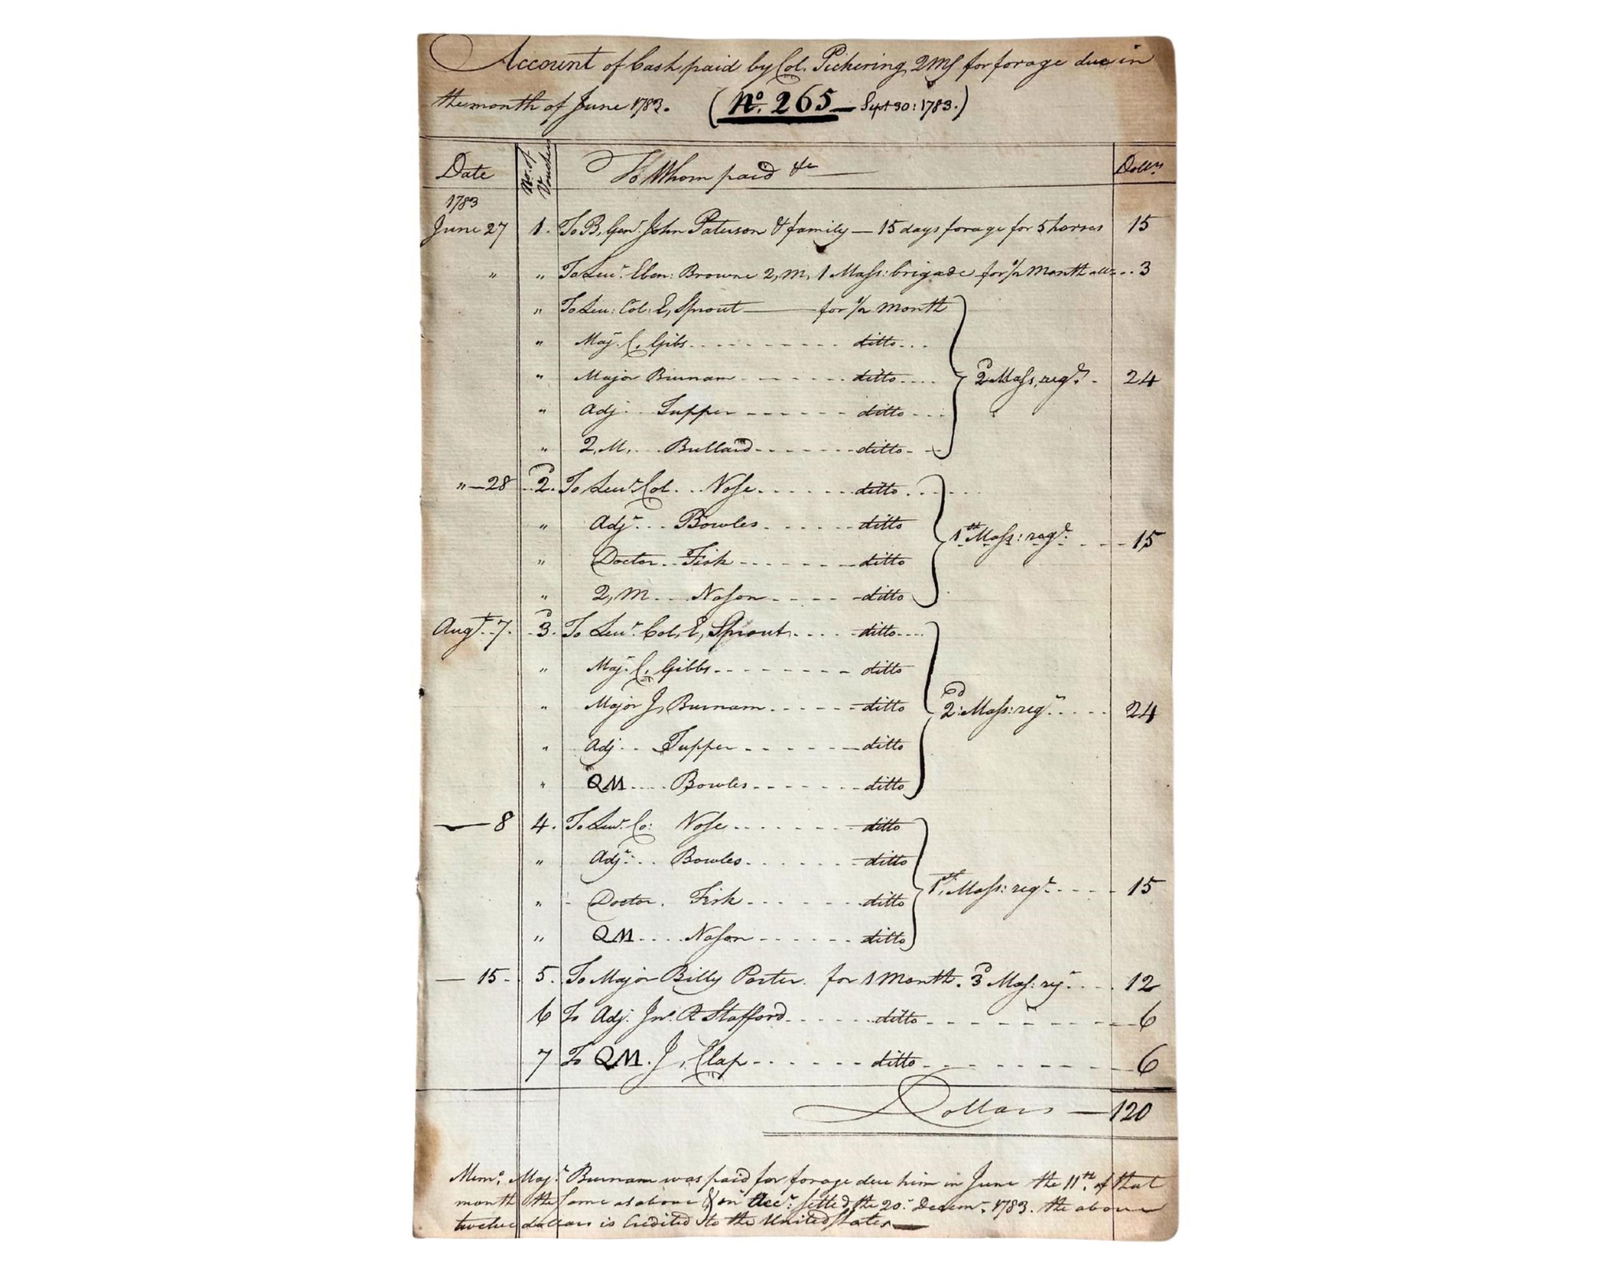 Account of Cash paid by Col. Pickering QMG for forage due in
the month of June 1783. (No. 265 — Sept 30: 1783.)
Date No. of Vouchers To Whom paid &c Dollrs
1783
June 27 1. To B. Genl. John Paterson & family — 15 days forage for 5 horses 15
" " To Leut. Eben: Browne Q,M, 1 Mass: brigade for 1/2 month .. 3
" To Leu: Col: E, Sprout — for 1/2 month
" Maj. C, Gibs ditto
" Major Burnam ditto 2d Mass, regt. 24
" Adj. Tupper ditto
" Q,M, Bullard ditto
" — 28 2d. To Leut. Col. Nose ditto
" Adjt. Bowles ditto 1th Mass: regt. 15
" Doctor Fisk ditto
" Q,M. Nason ditto
Augt. 7. 3d. To Leut. Col. E, Sprout ditto
" Maj. C, Gibbs ditto
" Major J, Burnam ditto 2d Mass: regt. 24
" Adj Tupper ditto
" QM Bowles ditto
— 8 4. To Leut. Co: Nose ditto
" Adjt. Bowles ditto
" Doctor. Fisk ditto 1th, Mass: regt. 15
" QM Nason ditto
— 15. 5. To Major Billy Porter for 1 Month. 3d Mas: regt. 12
6 To Adj. Jno. A Stafford ditto 6
7 To QM. J, Clap ditto 6
Dollars — 120
Memo. Majr. Burnam was paid for forage due him in June the 11th. of that
month the same as above & on Acct. settled, the 20. Decem. 1783. the above
twelve dollars is Credited to the United States —